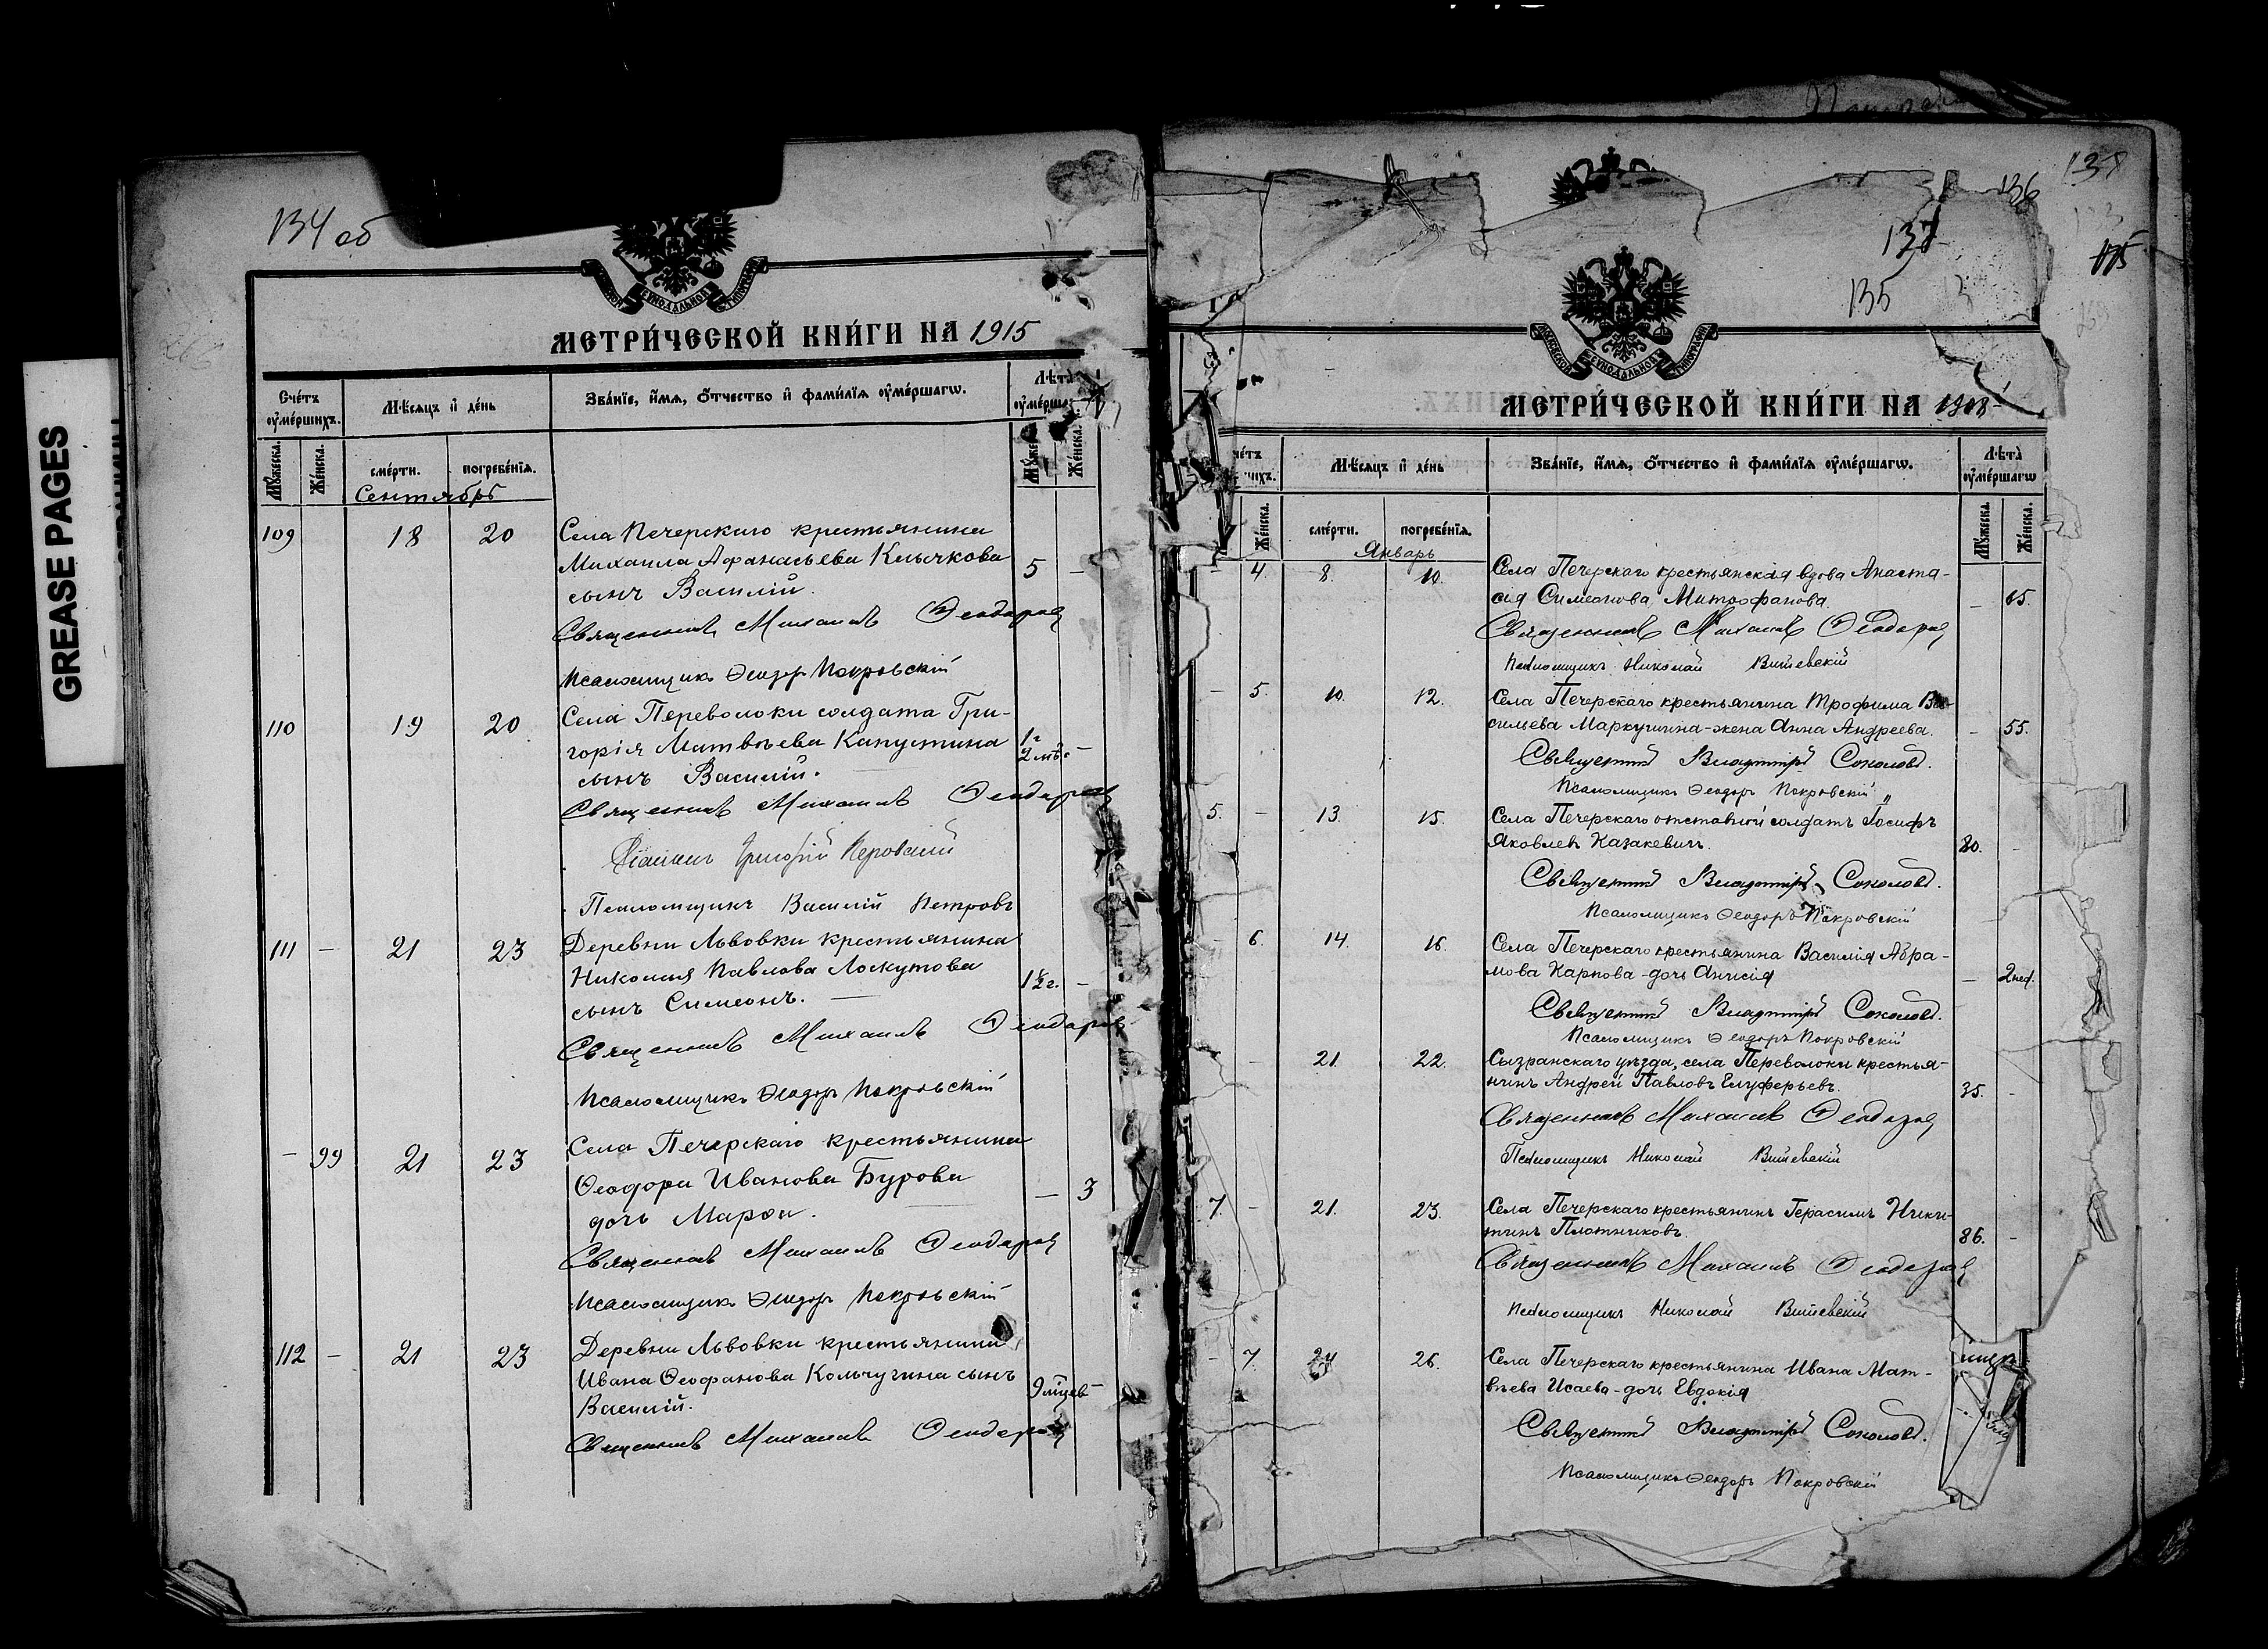 GREASE PAGES
134 об
МЕТРИ́ЧЕСКОЙ КНИ́ГИ НА 1915
Сче́тъ оумершихъ.
Мѣсяцъ и де́нь
Зва́нїе, и́мя, о́тчество и фами́лїя оуме́ршагѡ.
Мужеска.
Же́нска.
сме́рти.
погребе́нїя.
Же́нска.
Сентябрь
109 18 20 Села Печерскаго крестьянина
Михаила Афанасьева Клычкова
сынъ Василій. 5 –
Священникъ Михаилъ Ѳеодоровъ
Псаломщикъ Ѳеодоръ Покровскій
110 19 20 Села Переволоки солдата Гри-
горія Матвѣева Капустина 1 г 2 мѣс –
сынъ Василій.
Священникъ Михаилъ Ѳеодоровъ
Псаломщикъ Василій Петровъ
111 – 21 23 Деревни Львовки крестьянина
Николая Павлова Лоскутова
сынъ Симеонъ. 1½ г. –
Священникъ Михаилъ Ѳеодоровъ
Псаломщикъ Ѳеодоръ Покровскій
– 99 21 23 Села Печерскаго крестьянина
Ѳеодора Иванова Бурова
дочь Марѳа. – 3
Священникъ Михаилъ Ѳеодоровъ
Псаломщикъ Ѳеодоръ Покровскій
112 – 21 23 Деревни Львовки крестьянина
Ивана Ѳеофанова Кольчугина сынъ
Василій. 9 мцев –
Священникъ Михаилъ Ѳеодоровъ
136
137
135
115
МЕТРИ́ЧЕСКОЙ КНИ́ГИ НА 1908
Мѣсяцъ и де́нь
Зва́нїе, и́мя, о́тчество и фами́лїя оуме́ршагѡ.
Лѣта̀ оуме́ршагѡ
Же́нска.
сме́рти.
погребе́нїя.
Мужеска.
Же́нска.
Январь
– 4. 8. 10. Села Печерскаго крестьянская вдова Анаста-
сія Симеонова Митрофанова. – 65.
Священникъ Михаилъ Ѳеодоровъ
Псаломщикъ Николай
– 5. 10. 12. Села Печерскаго крестьянина Трофима Ва-
сильева Маркушина - жена Анна Андреева. – 55.
Священникъ Владиміръ Соколовъ.
Псаломщикъ Ѳеодоръ Покровскій
5. – 13. 15. Села Печерскаго отставной солдатъ Іосифъ
Яковлевъ Казакевичъ. 80. –
Священникъ Владиміръ Соколовъ.
Псаломщикъ Ѳеодоръ Покровскій
– 6. 14. 16. Села Печерскаго крестьянина Василія Абра-
мова Карпова - дочь Анисія – 2 нед.
Священникъ Владиміръ Соколовъ.
Псаломщикъ Ѳеодоръ Покровскій
– 21. 22. Сызранскаго уѣзда, села Переволоки крестья-
нинъ Андрей Павловъ Елуферьевъ. 35. –
Священникъ Михаилъ Ѳеодоровъ
Псаломщикъ Николай
7. – 21. 23. Села Печерскаго крестьянинъ Герасимъ Ники-
тинъ Плотниковъ. 86. –
Священникъ Михаилъ Ѳеодоровъ
Псаломщикъ Николай
– 7. 24 26. Села Печерскаго крестьянина Ивана Мат-
вѣева Исаева - дочь Евдокія
Священникъ Владиміръ Соколовъ.
Псаломщикъ Ѳеодоръ Покровскій